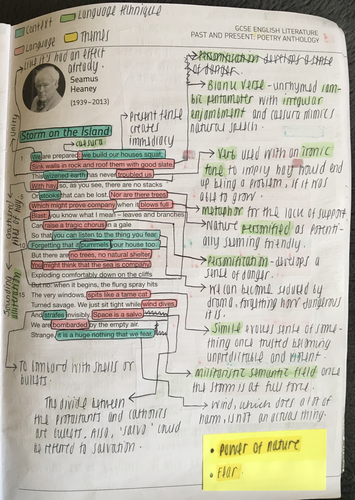 Context
Language technique
Language
Themes
GCSE ENGLISH LITERATURE
PAST AND PRESENT: POETRY ANTHOLOGY
like it's had an effect
already.
Seamus
Heaney
(1939 – 2013)
Present tense
creates
immediacy
Storm on the Island
caesura
We are prepared: we build our houses squat,
Sink walls in rock and roof them with good slate.
This wizened earth has never troubled us
With hay, so, as you see, there are no stacks
Or stooks that can be lost. Nor are there trees
Which might prove company when it blows full
Blast: you know what I mean – leaves and branches
Can raise a tragic chorus in a gale
So that you can listen to the thing you fear
Forgetting that it pummels your house too.
But there are no trees, no natural shelter.
You might think that the sea is company,
Exploding comfortably down on the cliffs
But no: when it begins, the flung spray hits
The very windows, spits like a tame cat
Turned savage. We just sit tight while wind dives
And strafes invisibly. Space is a salvo.
We are bombarded by the empty air.
Strange, it is a huge nothing that we fear.
Personification develops a sense
of danger.
Blank verse - unrhymed iam-
bic pentameter with irregular
enjambment and caesura mimics
natural speech.
Verb used with an ironic
tone to imply hay would end
up being a problem, if it was
able to grow.
metaphor for the lack of support.
Nature personified as potenti-
ally seeming friendly.
Personification - develops a
sense of danger.
We can become seduced by
drama, forgetting how dangerous
it is.
Simile evokes sense of some-
thing once trusted becoming
unpredictable and violent.
militaristic semantic field once
the storm is at full force.
Wind, which does a lot of
harm, is not an actual thing.
To bombard with shells or
bullets.
The divide between
the protestants and catholics
Also, 'salvo' could
be referred to salvation.
• Power of nature
• Fear